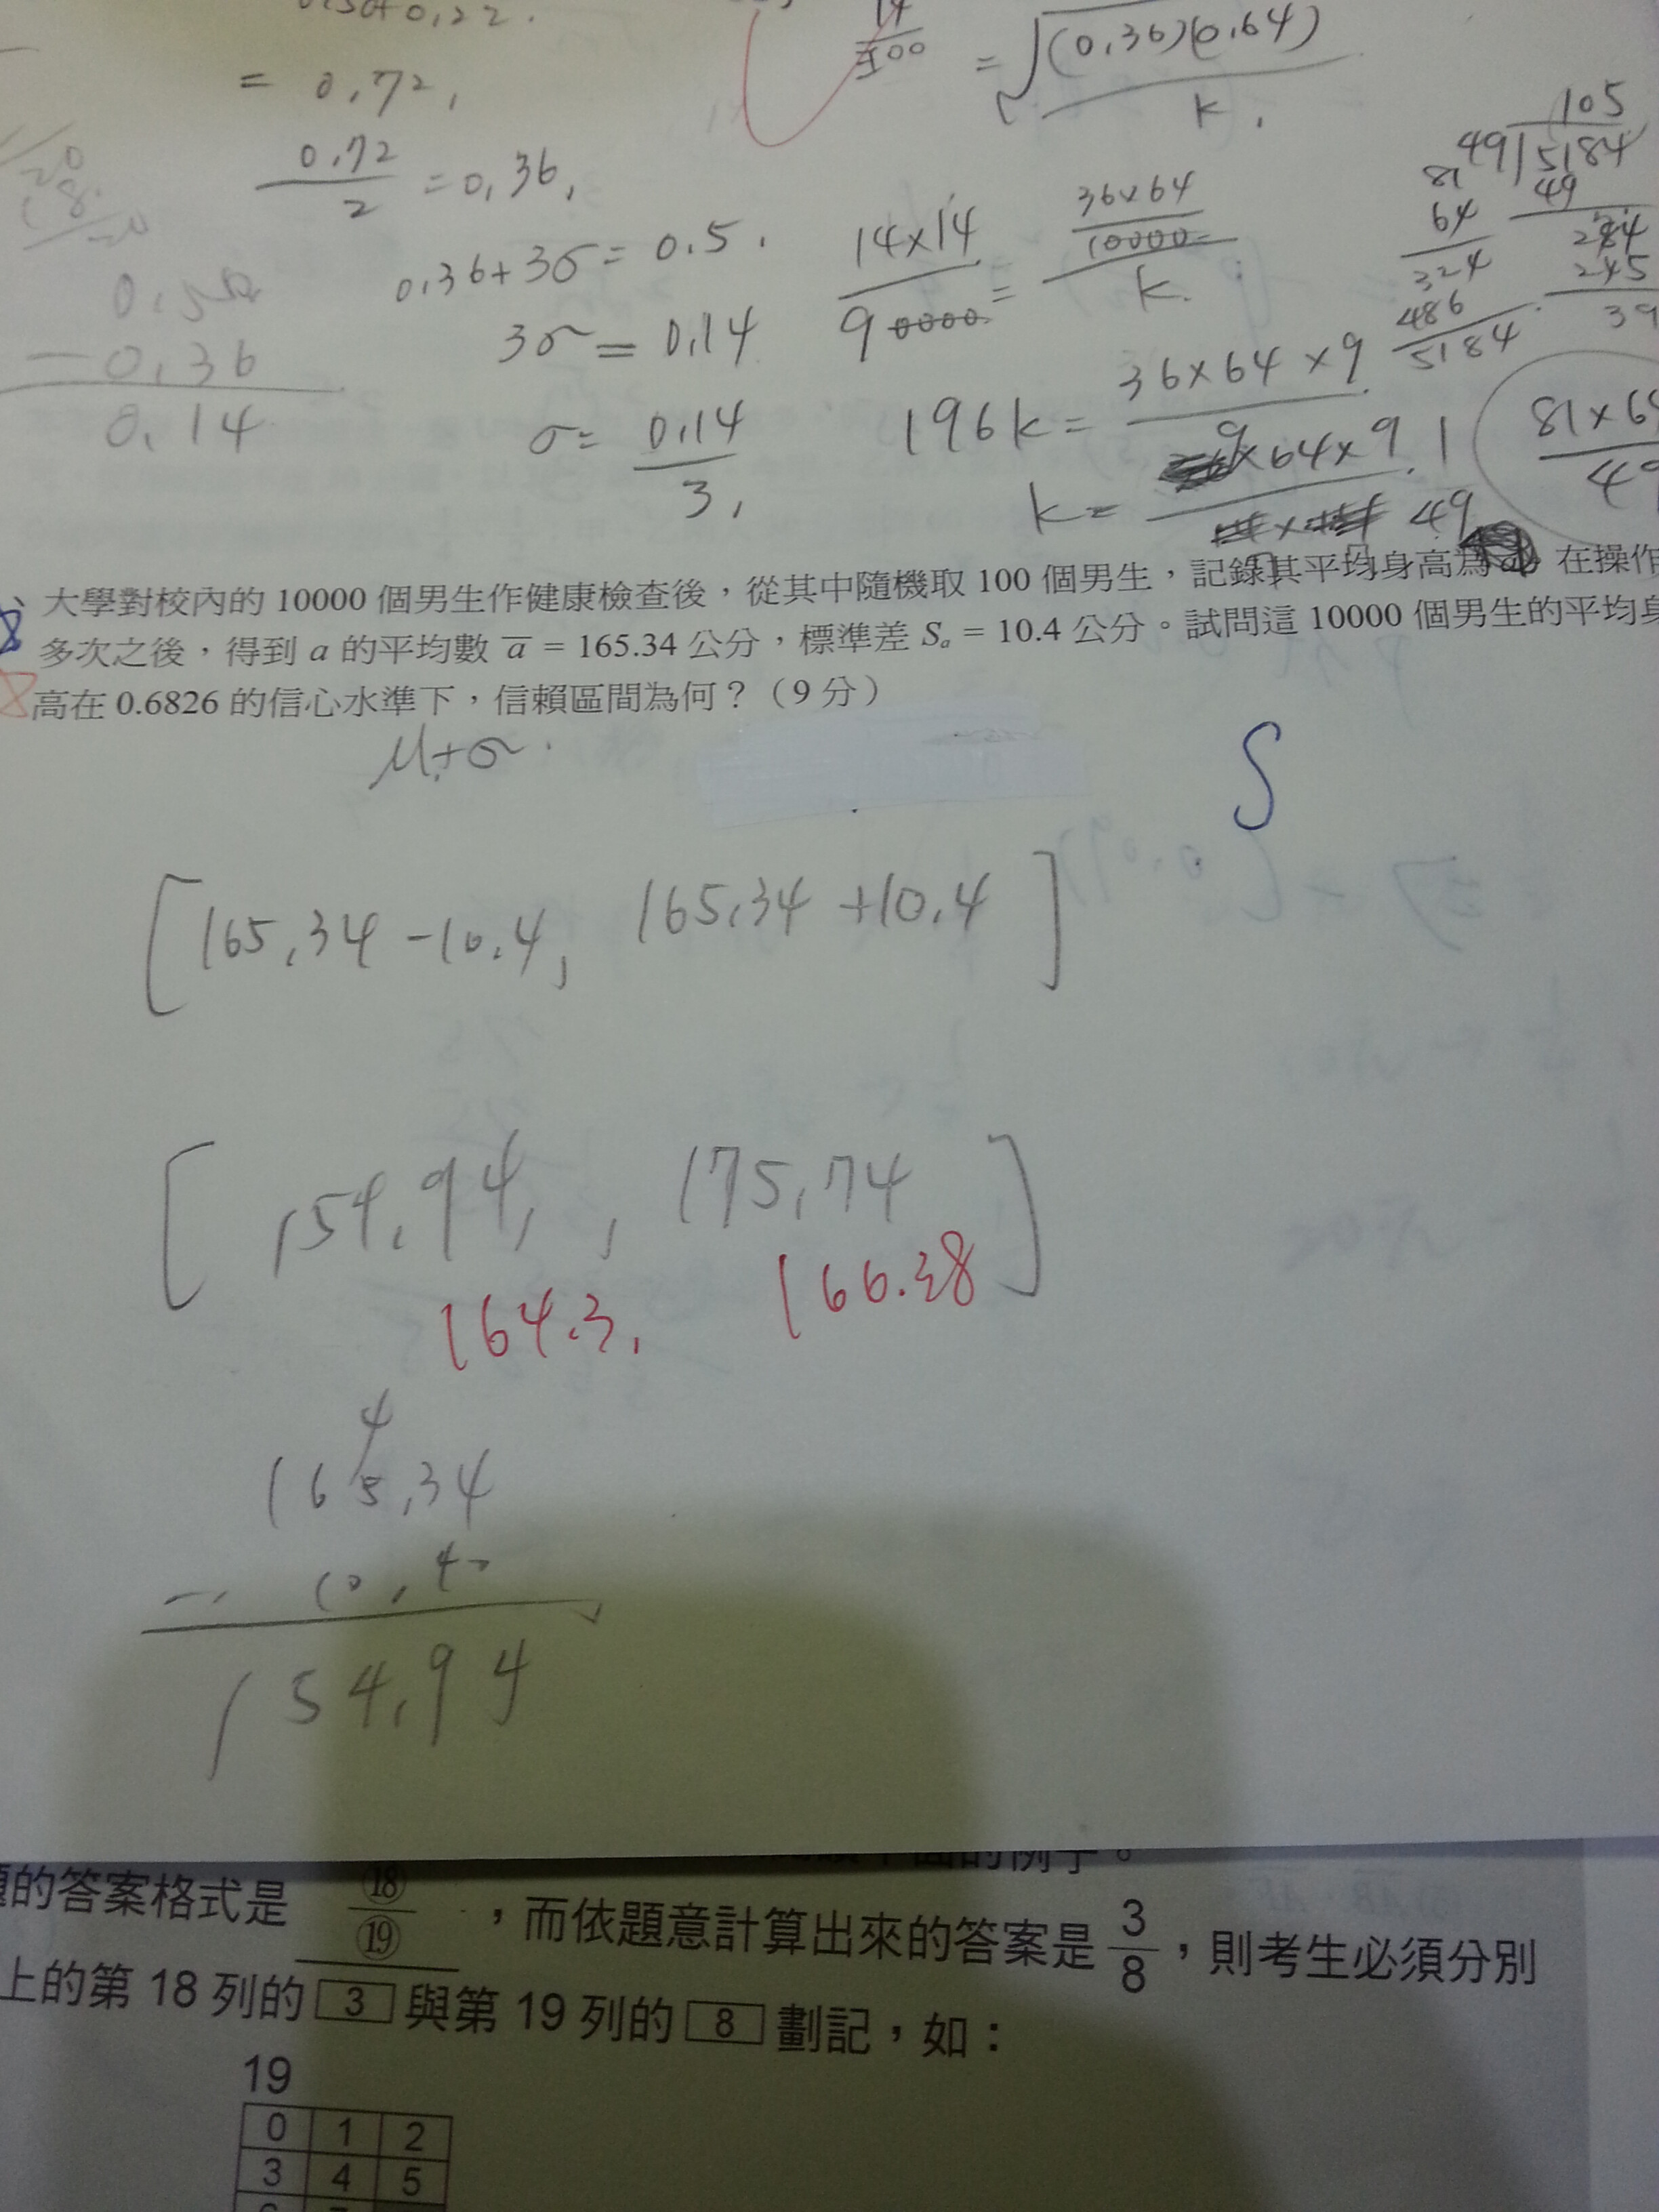 = 0.72,
0.72/2 = 0.36,
0.36+3σ = 0.5.
3σ = 0.14
σ = 0.14/3,
0.36
0.14
14/300 = √((0.36)(0.64)/k).
14×14/90000 = (36×64/10000)/k.
196k = 36×64×9
k = 9×64×9/49
81
64
324
486
5184
105
49 5184
49
284
245
39
大學對校內的 10000 個男生作健康檢查後，從其中隨機取 100 個男生，記錄其平均身高為 在操作
多次之後，得到 a 的平均數 a̅ = 165.34 公分，標準差 Sₐ = 10.4 公分。試問這 10000 個男生的平均身
高在 0.6826 的信心水準下，信賴區間為何？（9 分）
μ+σ.
[165.34 -10.4, 165.34 +10.4]
[154.94, , 175.74]
164.3, 166.38
4
165.34
- 10.40
154.94
的答案格式是 ⑱/⑲ ，而依題意計算出來的答案是 3/8，則考生必須分別
上的第 18 列的 3 與第 19 列的 8 劃記，如：
19
0 1 2
3 4 5